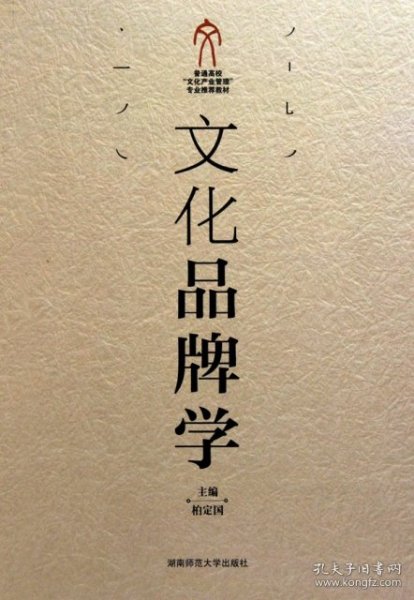 普通高校
"文化产业管理"
专业推荐教材
文化品牌学
主编
柏定国
湖南师范大学出版社
孔夫子旧书网
www.kongfz.com